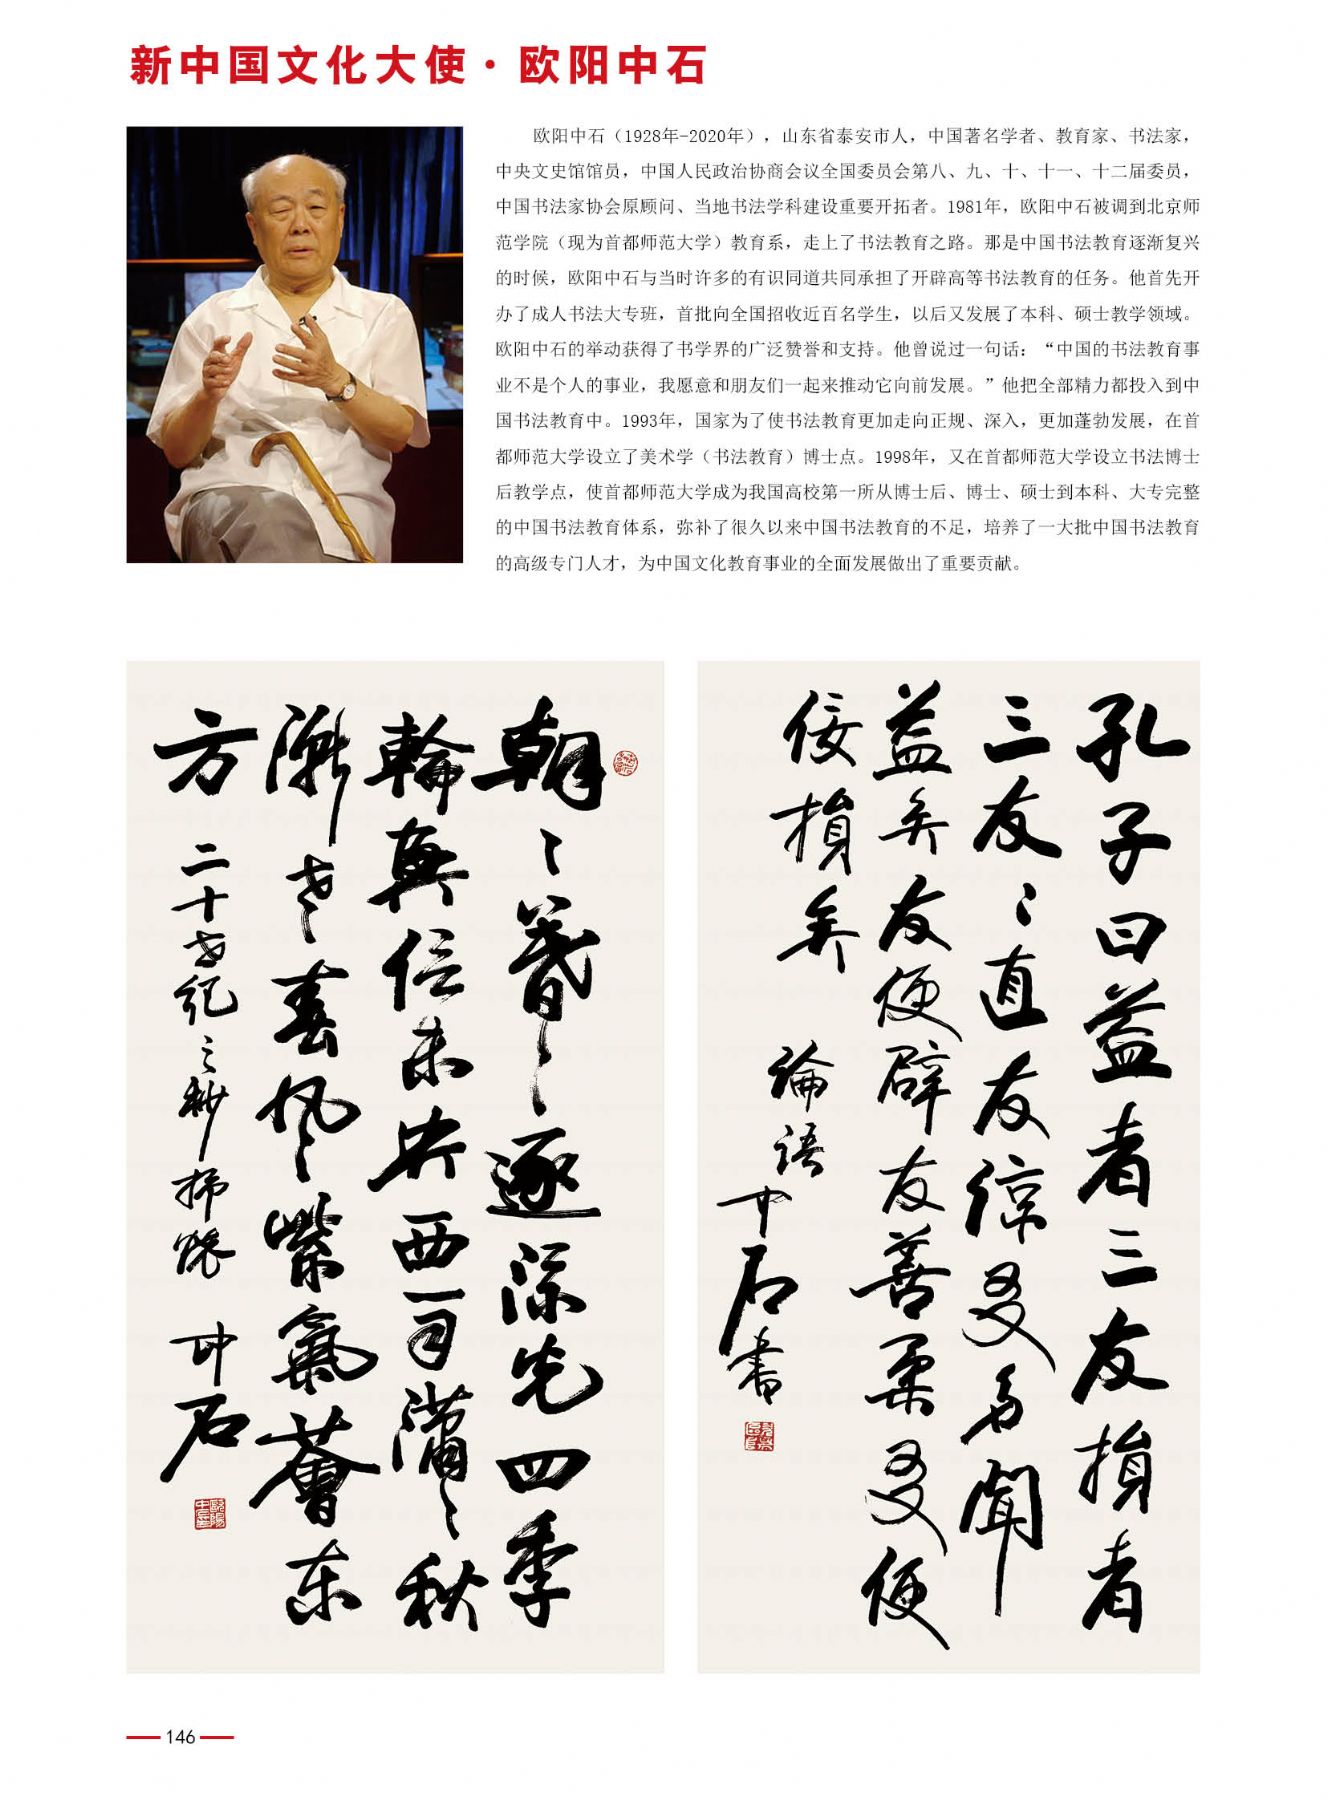 新中国文化大使·欧阳中石
欧阳中石（1928年-2020年），山东省泰安市人，中国著名学者、教育家、书法家，
中央文史馆馆员，中国人民政治协商会议全国委员会第八、九、十、十一、十二届委员，
中国书法家协会原顾问、当地书法学科建设重要开拓者。1981年，欧阳中石被调到北京师
范学院（现为首都师范大学）教育系，走上了书法教育之路。那是中国书法教育逐渐复兴
的时候，欧阳中石与当时许多的有识同道共同承担了开辟高等书法教育的任务。他首先开
办了成人书法大专班，首批向全国招收近百名学生，以后又发展了本科、硕士教学领域。
欧阳中石的举动获得了书学界的广泛赞誉和支持。他曾说过一句话：“中国的书法教育事
业不是个人的事业，我愿意和朋友们一起来推动它向前发展。”他把全部精力都投入到中
国书法教育中。1993年，国家为了使书法教育更加走向正规、深入，更加蓬勃发展，在首
都师范大学设立了美术学（书法教育）博士点。1998年，又在首都师范大学设立书法博士
后教学点，使首都师范大学成为我国高校第一所从博士后、博士、硕士到本科、大专完整
的中国书法教育体系，弥补了很久以来中国书法教育的不足，培养了一大批中国书法教育
的高级专门人才，为中国文化教育事业的全面发展做出了重要贡献。
孔子曰益者三友損者
三友〻直友諒友多聞
益矣友便辟友善柔友便
佞損矣 論語 中石書
朝〻暮〻逐流光四季
輪奐信未央西瀟〻秋
漸老〻春風〻紫氣薈东
方 二十世紀之秒 中石
歐陽中石
146